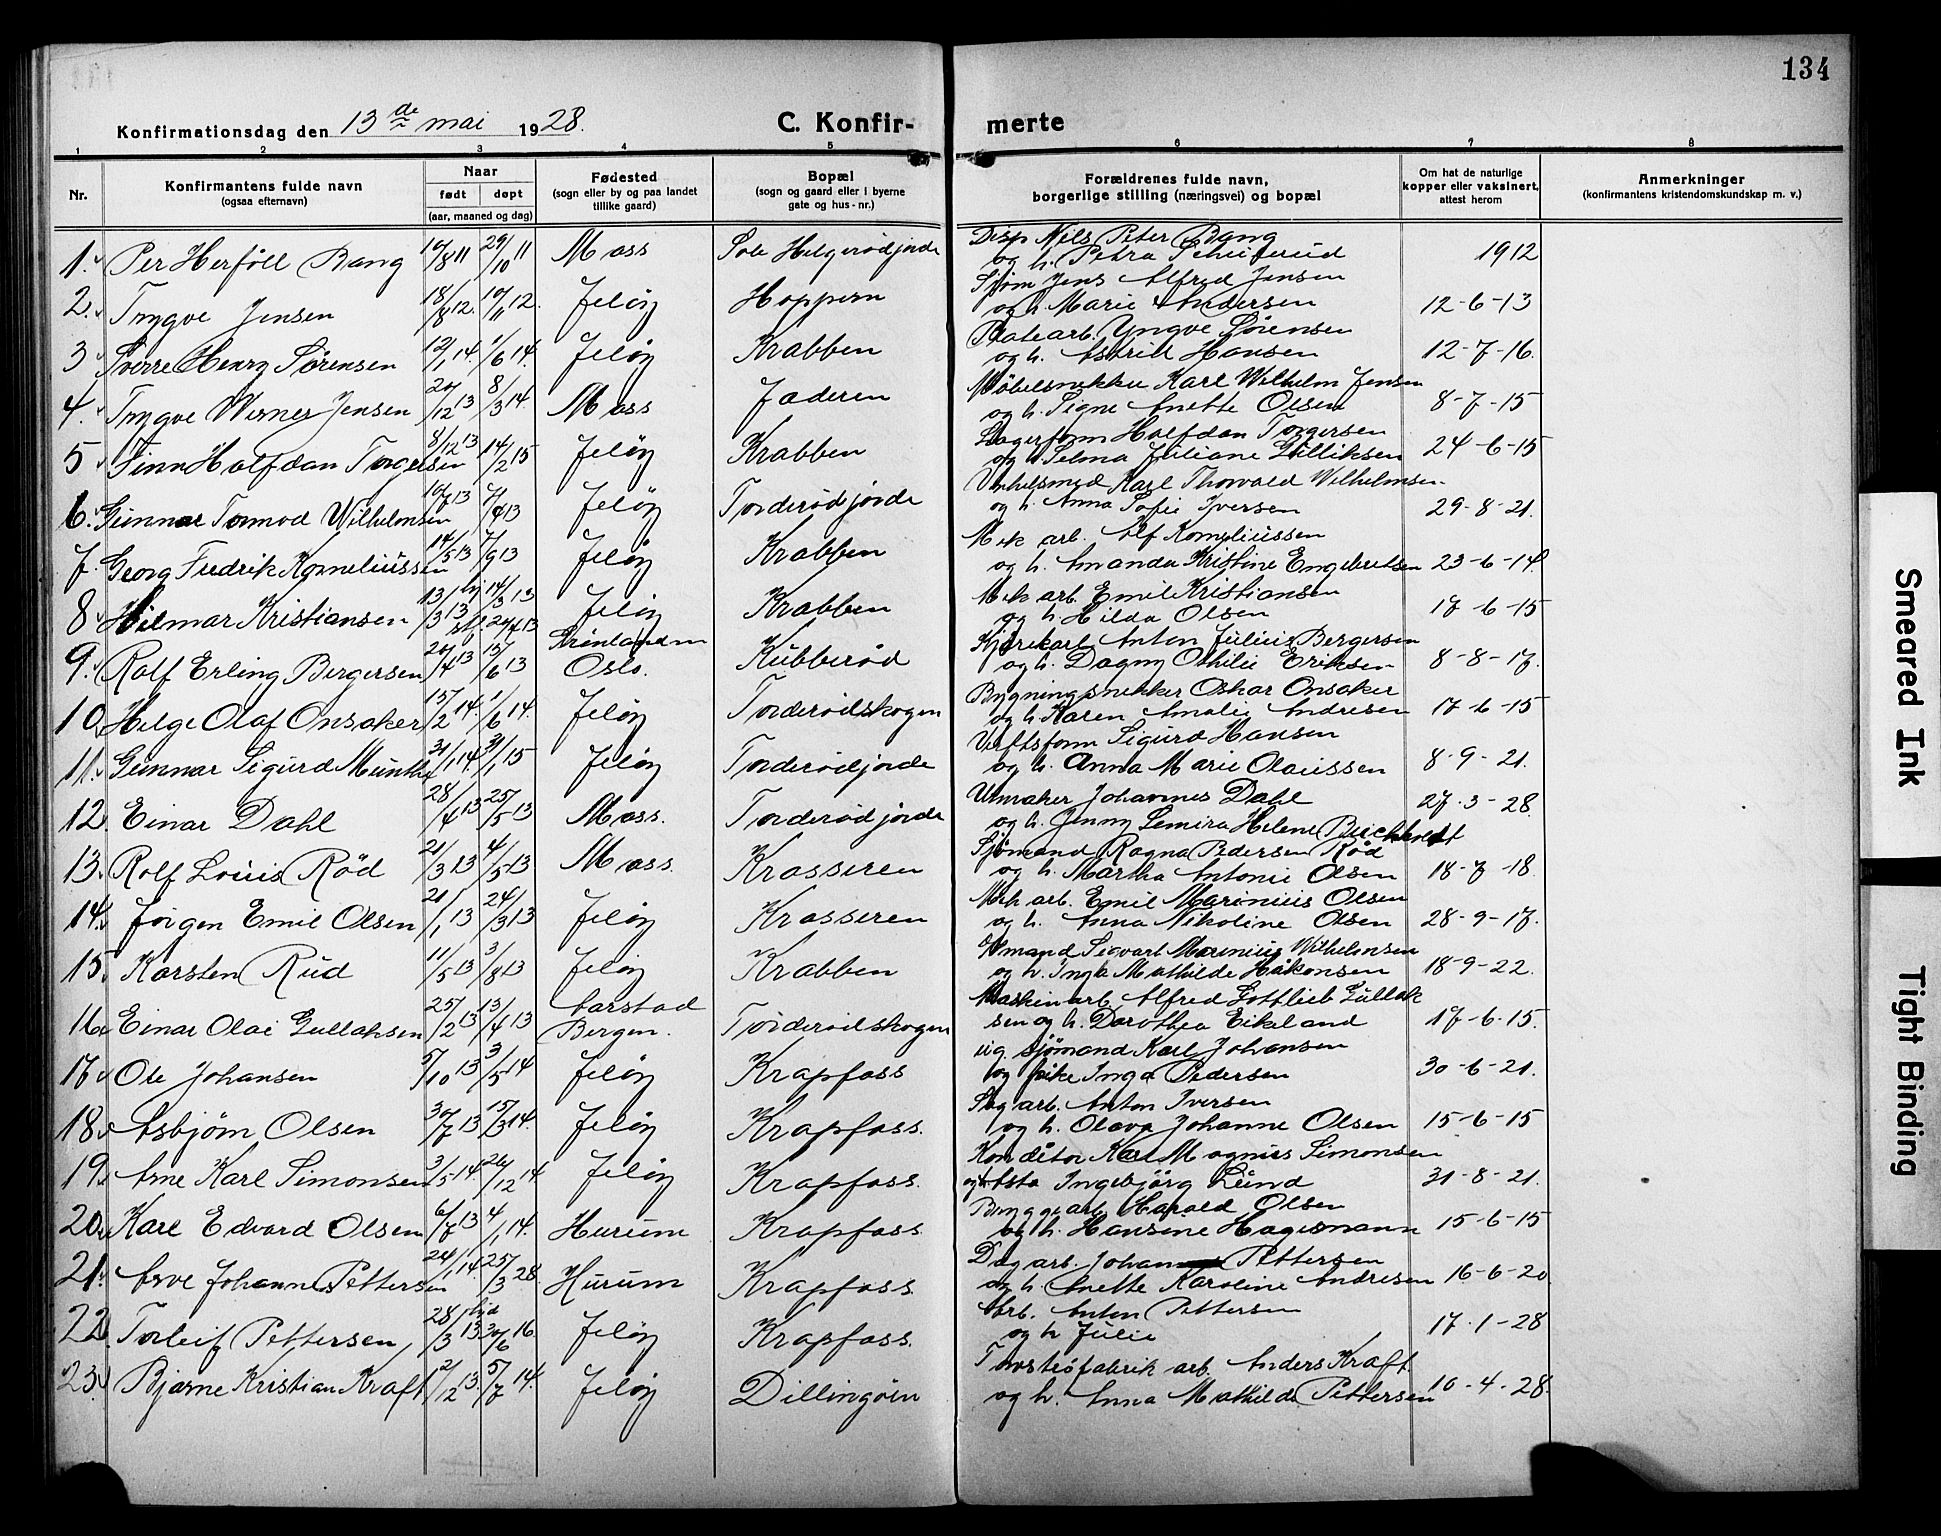 134
Konfirmationsdag den 13de mai 1928.
C. Konfir-
merte
1 2 3 4 5 6 7 8
Nr.
Konfirmantens fulde navn
(ogsaa efternavn)
Naar
født døpt
(aar, maaned og dag)
Fødested
(sogn eller by og paa landet
tillike gaard)
Bopæl
(sogn og gaard eller i byerne
gate og hus-nr.)
Forældrenes fulde navn,
borgerlige stilling (næringsvei) og bopæl
Om hat de naturlige
kopper eller vaksinert,
attest herom
Anmerkninger
(konfirmantens kristendomskundskap m. v.)
1. Per Herföll Bang 10/8 11 29/10 11 Moss Sole Helgerødjorde Disp Nils Peter Bang
og h. Petra 1912
2. Trygve Jensen 18/8 12. 10/11 12. Jeløy Hoppern Sjøm Jens Alfred Jensen
og h. Marie Andersen 12-6-13
3 Sverre Henry Sørensen 12/1 14. 1/6 14. Jeløy Krabben Platearb. Yngve Sørensen
og h. Astrid Hansen 12-7-16.
4. Trygve Werner Jensen 20/12 13 8/3 14. Moss Jaderen Møbelsnekker Karl Wilhelm Jensen
og h. Signe Anette Olsen 8-7-15
5 Finn Halfdan Torgersen 8/12 13 14/2 15 Jeløy Krabben Lagerform Halfdan Torgersen
og h. Selma Juliane Gulliksen 24-6-15
6. Gunnar Tormod Wilhelmsen 10/2 13 7/4 13 Jeløy Torderødjorde Karl Thorvald Wilhelmsen
og h. Anna Sofie Iversen 29-8-21.
7. Georg Fredrik Korneliussen 14/5 13 7/9 13 Jeløy Krabben Mek arb. Alf Korneliussen
og h. Amanda Kristine Engebretsen 23-6-14.
8 Hilmar Kristiansen 13/3 13 hj 14/3 13
st. 20/4 13 Jeløy Krabben Mek arb. Emil Kristiansen
og h. Hilda Olsen 17-6-15
9. Rolf Erling Bergersen 20/4 13 15/6 13 Grønland m
Oslo. Kubberød Kjørekarl Anton Julius Bergersen
og h. Dagny Othilie Eriksen 8-8-17.
10. Helge Olaf Onsaker 15/2 14. 1/6 14. Jeløy Torderødskogen Bygningssnekker Oskar Onsaker
og h. Karen Amalie Andresen 17-6-15
11. Gunnar Sigurd Munthe 31/1 14 31/1 15 Jeløy Torderødjorde Verftsform Sigurd Hansen
og h. Anna Marie Olaussen 8-9-21.
12. Einar Dahl 28/4 13 25/5 13 Moss. Torderødjorde Urmaker Johannes Dahl
og h. Jenny Semira Helene 27-3-28.
13. Rolf Louis Rød 21/3 13 4/5 13 Moss. Krosseren Sjømand Ragna Pedersen Rød
og h. Martha Antonie Olsen 18-7-18.
14. Jørgen Emil Olsen 21/1 13 24/3 13 Jeløy Krosseren Mek arb. Emil Marinius Olsen
og h. Anna Nikoline Olsen 28-9-17.
15. Karsten Rud 11/5 13 3/8 13 Jeløy Krabben Sigvart Marinius Wilhelmsen
og h. Inga Mathilde Håkonsen 18-9-22.
16. Einar Olai Gullaksen 25/2 13 13/4 13 Aarstad
Bergen. Torderødskogen Maskinarb. Alfred Gottlieb Gullak
sen og h. Dorothea Eikeland 17-6-15.
17 Ole Johansen 5/10 13 3/5 14 Jeløy Krapfoss ug. sjømand Karl Johansen
og pike Inga Pedersen 30-6-21.
18. Asbjørn Olsen 30/7 13 15/3 14. Jeløy Krapfoss. Sag arb. Anton Iversen
og h. Olava Johanne Olsen 15-6-15
19. Arne Karl Simonsen 3/5 14. 26/12 14 Jeløy Krapfoss. Konditor Karl Magnus Simonsen
og h. Asta Ingebjørg Lund 31-8-21.
20. Karl Edvard Olsen 6/7 13 4/1 14. Hurum Krapfoss. Bryggearb. Harald Olsen
og h. Hansine Hagesmann 15-6-15
21. Arve Johannes Pettersen 24/1 14. 25/3 28 Hurum Krapfoss. Dag arb. Johan Pettersen
og h. Anette Karoline Andresen 16-6-20
22. Torleif Pettersen, 28/3 13 30/6 16. Jeløy Krapfoss. Arb. Anton Pettersen
og h Julie 17.1-28
23. Bjarne Kristian Kraft 2/12 13. 5/7 14. Jeløy Dillingøen arb. Anders Kraft.
og h. Anna Mathilde Pettersen 10-4-28.
Smeared Ink
Tight Binding